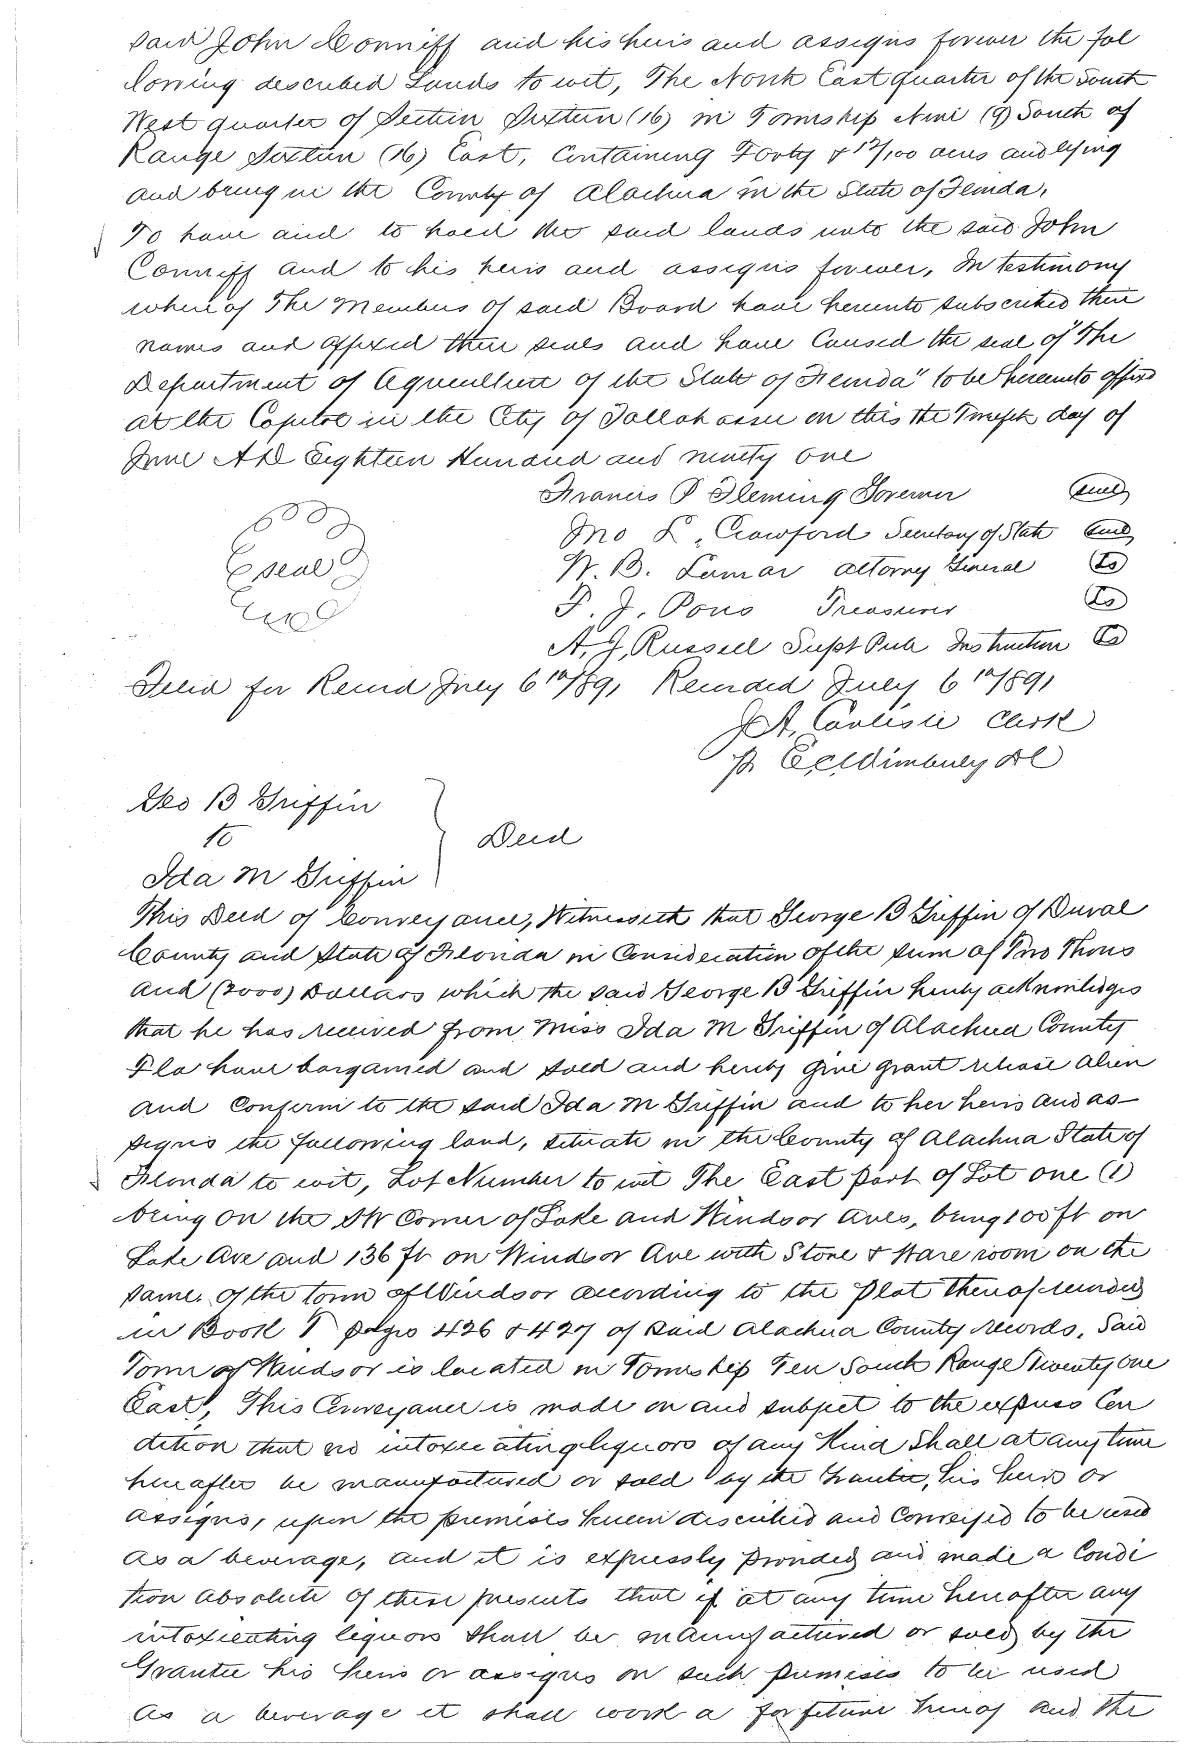 said John Conniff and his heirs and assigns forever the fol
lowing described Lands to wit, The North East quarter of the South
West quarter of Section Sixteen (16) in Township Nine (9) South of
Range Sixteen (16) East, Containing Forty & 12/100 acres and lying
and being in the County of Alachua in the State of Florida,
To have and to hold the said lands unto the said John
Conniff and to his heirs and assigns forever, In testimony
where of The Members of said Board have hereunto subscribed their
names and affixed their seals and have Caused the seal of "The
Department of Agriculture of the State of Florida" to be hereunto affixed
at the Capitol in the City of Tallahassee on this the Twelfth day of
June AD Eighteen Hundred and ninety one
Francis P Fleming Governor (seal)
Jno L. Crawford Secretary of State (seal)
(seal) W. B. Lamar attorney General (Ls)
F. J. Pons Treasurer (Ls)
A. J. Russell Supt Pub Instruction (Ls)
Filed for Record July 6th/891 Recorded July 6th/891
J A. Carlisle Clerk
pr E.C. Wimberly DC
Geo B Griffin
to
Deed
Ida M Griffin
This Deed of Conveyance, Witnesseth that George B Griffin of Duval
County and State of Florida in Consideration of the sum of Two Thous
and (2000) Dollars which the said George B Griffin hereby acknowledges
that he has received from Miss Ida M Griffin of Alachua County
Fla have bargained and sold and hereby give grant release alien
and Confirm to the said Ida M Griffin and to her heirs and as-
signs the following land, situate in the County of Alachua State of
Florida to wit, Lot Number to wit The East part of Lot one (1)
being on the SW Corner of Lake and Windsor Aves, being 100 ft on
Lake Ave and 136 ft on Windsor Ave with Store & Ware room on the
same, of the town of Windsor according to the Plat thereof recorded
in Book T pages 426 & 427 of said Alachua County records, Said
Town of Windsor is located in Township Ten South Range Twenty one
East, This Conveyance is made on and subject to the express Con
dition that no intoxicating liquors of any Kind Shall at any time
hereafter be manufactured or sold by the Grantee, his heirs or
assigns, upon the premises herein described and Conveyed to be used
as a beverage, and it is expressly provided and made a Condi
tion absolute of these presents that if at any time hereafter any
intoxicating liquors shall be manufactured or sold by the
Grantee his heirs or assigns on such premises to be used
as a beverage it shall work a forfeiture hereof and the